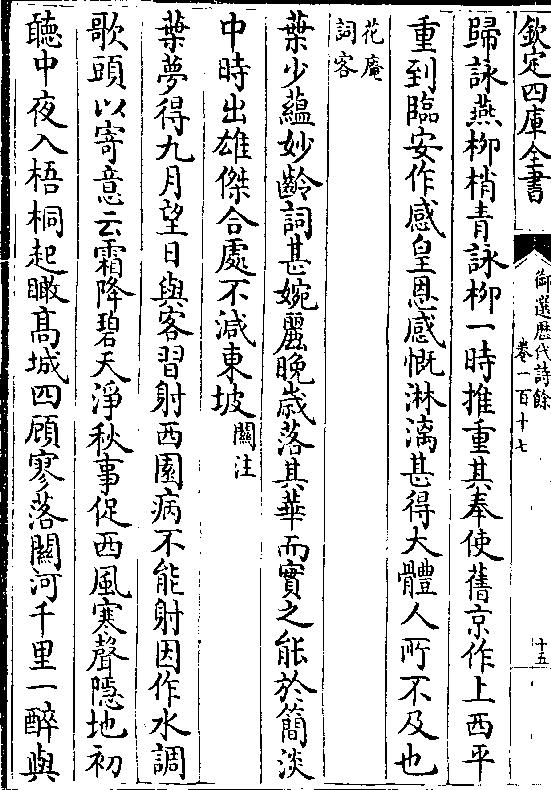 欽定四庫全書
御選歴代詩餘
卷一百十七
十五
歸詠燕柳梢青詠柳一時推重其奉使舊京作上西平
重到臨安作感皇恩感慨淋漓甚得大體人所不及也
花庵
詞客
葉少藴妙齡詞甚婉麗晚歳落其華而實之能於簡淡
中時出雄傑合處不減東坡
關注
葉夢得九月望日與客習射西園病不能射因作水調
歌頭以寄意云霜降碧天淨秋事促西風寒聲隱地初
聽中夜入梧桐起瞰髙城四顧寥落關河千里一醉與